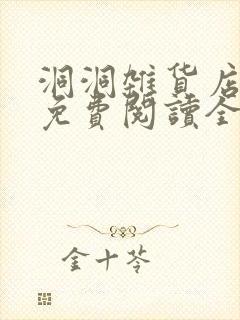 洞洞雜貨店
免費閱讀全
金十苓